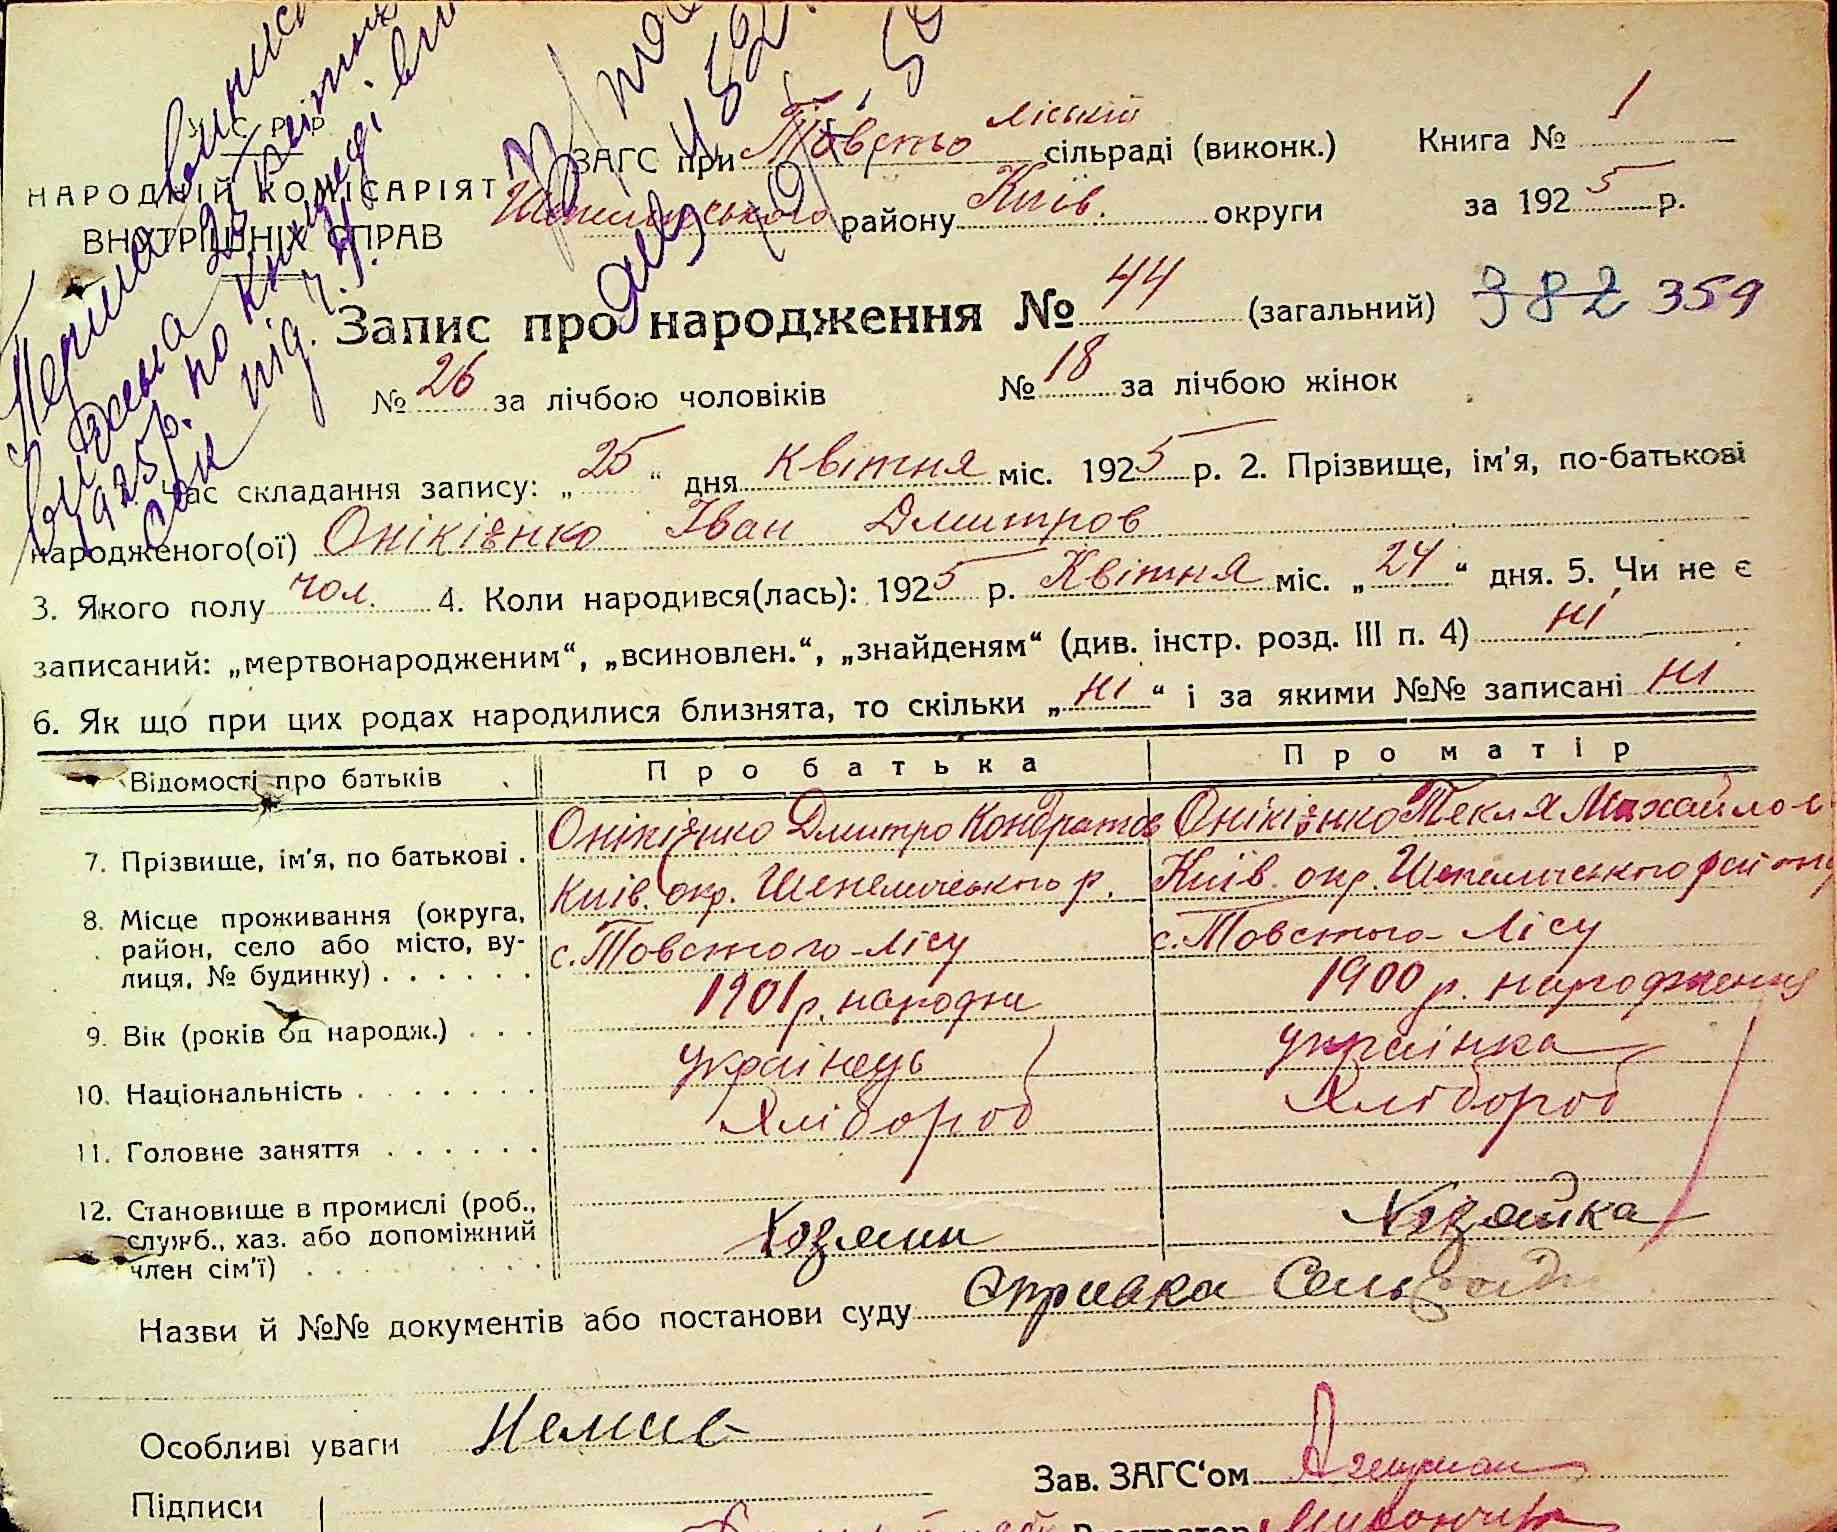 У С Р Р
НАРОДНІЙ КОМІСАРІЯТ
ВНУТРІШНІХ СПРАВ
ЗАГС при Товсто ліській сільраді (виконк.) Книга № 1
району Київ. округи за 1925 р.
Запис про народження № 44 (загальний) 382 359
№ 26 за лічбою чоловіків № 18 за лічбою жінок
Час складання запису: „25“ дня Квітня міс. 1925 р. 2. Прізвище, ім'я, по-батькові
народженого(ої) Онікієнко Іван Дмитров
3. Якого полу чол. 4. Коли народився(лась): 1925 р. Квітня міс. „24“ дня. 5. Чи не є
записаний: „мертвонародженим“, „всиновлен.“, „знайденям“ (див. інстр. розд. III п. 4) ні
6. Як що при цих родах народилися близнята, то скільки „ні“ і за якими №№ записані ні
Відомості про батьків Про батька Про матір
7. Прізвище, ім'я, по батькові . Онікієнко Дмитро Кондратов Онікієнко Текля Михайлов
8. Місце проживання (округа, район, село або місто, вулиця, № будинку) . . . . . . Київ. окр. Шепелического р. с. Товстого-Лісу Київ. окр. Шепелического району с. Товстого-Лісу
9. Вік (років од народж.) . . . 1901 р. народж 1900 р. народження
10. Національність . . . . . . . українець українка
11. Головне заняття . . . . . . Хлібороб Хлібороб
12. Становище в промислі (роб., служб., хаз. або допоміжний член сім'ї) . . . . . . . . Хозяин Хозяйка
Назви й №№ документів або постанови суду Справка Сельради
Особливі уваги Немає
Зав. ЗАГС'ом
Підписи
Реєстратор